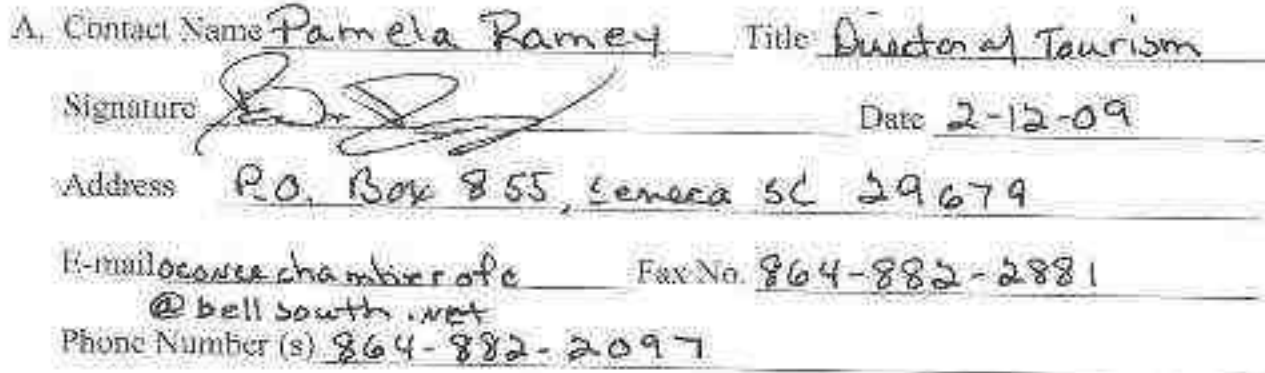 A. Contact Name Pamela Ramey Title Director of Tourism
Signature Date 2-12-09
Address P.O. Box 855, Seneca SC 29679
E-mail oconeechamberofc Fax No. 864-882-2881
@bellsouth.net
Phone Number (s) 864-882-2097